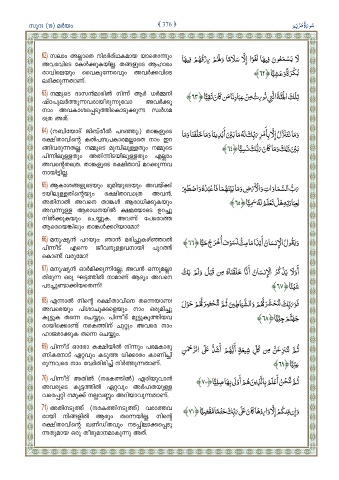 സൂറ: (19) മർയം ﴾ 376 ﴿ سُورَةُ مَرْيَم
62) സലാം അല്ലാതെ നിരർത്ഥകമായ യാതൊന്നും
അവരവിടെ കേൾക്കുകയില്ല. തങ്ങളുടെ ആഹാരം
രാവിലെയും വൈകുന്നേരവും അവർക്കവിടെ
ലഭിക്കുന്നതാണ്.
لَا يَسْمَعُونَ فِيهَا لَغْوًا إِلَّا سَلَامًا وَلَهُمْ رِزْقُهُمْ فِيهَا
بُكْرَةً وَعَشِيًّا ﴿٦٢﴾
63) നമ്മുടെ ദാസന്മാരിൽ നിന്ന് ആർ ധർമ്മനി
ഷ്ഠപുലർത്തുന്നവരായിരുന്നുവോ അവർക്കു
നാം അവകാശപ്പെടുത്തിക്കൊടുക്കുന്ന സ്വർഗമ
ത്രെ അത്.
تِلْكَ الْجَنَّةُ الَّتِي نُورِثُ مِنْ عِبَادِنَا مَنْ كَانَ تَقِيًّا ﴿٦٣﴾
64) (നബിയോട് ജിബ്‌രീൽ പറഞ്ഞു:) താങ്കളുടെ
രക്ഷിതാവിന്റെ കൽപനപ്രകാരമല്ലാതെ നാം ഇറ
ങ്ങിവരുന്നതല്ല. നമ്മുടെ മുമ്പിലുള്ളതും നമ്മുടെ
പിന്നിലുള്ളതും അതിന്നിടയിലുള്ളതും എല്ലാം
അവന്റെതത്രെ. താങ്കളുടെ രക്ഷിതാവ് മറക്കുന്നവ
നായിട്ടില്ല.
وَمَا نَتَنَزَّلُ إِلَّا بِأَمْرِ رَبِّكَ لَهُ مَا بَيْنَ أَيْدِينَا وَمَا خَلْفَنَا وَمَا
بَيْنَ ذَلِكَ وَمَا كَانَ رَبُّكَ نَسِيًّا ﴿٦٤﴾
65) ആകാശങ്ങളുടെയും ഭൂമിയുടെയും അവയ്ക്കി
ടയിലുള്ളതിന്റെയും രക്ഷിതാവത്രെ അവൻ.
അതിനാൽ അവനെ താങ്കൾ ആരാധിക്കുകയും
അവന്നുള്ള ആരാധനയിൽ ക്ഷമയോടെ ഉറച്ചു
നിൽക്കുകയും ചെയ്യുക. അവന്ന് പേരൊത്ത
ആരെയെങ്കിലും താങ്കൾക്കറിയാമോ?
رَبُّ السَّمَاوَاتِ وَالْأَرْضِ وَمَا بَيْنَهُمَا فَاعْبُدْهُ وَاصْطَبِرْ
لِعِبَادَتِهِ هَلْ تَعْلَمُ لَهُ سَمِيًّا ﴿٦٥﴾
66) മനുഷ്യൻ പറയും: ഞാൻ മരിച്ചുകഴിഞ്ഞാൽ
പിന്നീട് എന്നെ ജീവനുള്ളവനായി പുറത്ത്
കൊണ്ട് വരുമോ?
وَيَقُولُ الْإِنْسَانُ أَئِذَا مَا مِتُّ لَسَوْفَ أُخْرَجُ حَيًّا ﴿٦٦﴾
67) മനുഷ്യൻ ഓർമിക്കുന്നില്ലേ; അവൻ ഒന്നുമല്ലാ
തിരുന്ന ഒരു ഘട്ടത്തിൽ നാമാണ് ആദ്യം അവനെ
പടച്ചുണ്ടാക്കിയതെന്ന്!
أَوَلَا يَذْكُرُ الْإِنْسَانُ أَنَّا خَلَقْنَاهُ مِنْ قَبْلُ وَلَمْ يَكُ
شَيْئًا ﴿٦٧﴾
68) എന്നാൽ നിന്റെ രക്ഷിതാവിനെ തന്നെയാണ!
അവരെയും പിശാചുക്കളെയും നാം ഒരുമിച്ചു
കൂട്ടുക തന്നെ ചെയ്യും. പിന്നീട് മുട്ടുകുത്തിയവ
രായിക്കൊണ്ട് നരകത്തിന് ചുറ്റും അവരെ നാം
ഹാജരാക്കുക തന്നെ ചെയ്യും.
فَوَرَبِّكَ لَنَحْشُرَنَّهُمْ وَالشَّيَاطِينَ ثُمَّ لَنُحْضِرَنَّهُمْ حَوْلَ
جَهَنَّمَ جِثِيًّا ﴿٦٨﴾
69) പിന്നീട് ഓരോ കക്ഷിയിൽ നിന്നും പരമകാരു
ണികനോട് ഏറ്റവും കടുത്ത ധിക്കാരം കാണിച്ചി
രുന്നവരെ നാം വേർതിരിച്ച് നിർത്തുന്നതാണ്.
ثُمَّ لَنَنْزِعَنَّ مِنْ كُلِّ شِيعَةٍ أَيُّهُمْ أَشَدُّ عَلَى الرَّحْمَنِ
عِتِيًّا ﴿٦٩﴾
70) പിന്നീട് അതിൽ (നരകത്തിൽ) എരിയുവാൻ
അവരുടെ കൂട്ടത്തിൽ ഏറ്റവും അർഹതയുള്ള
വരെപ്പറ്റി നമുക്ക് നല്ലവണ്ണം അറിയാവുന്നതാണ്.
ثُمَّ لَنَحْنُ أَعْلَمُ بِالَّذِينَ هُمْ أَوْلَى بِهَا صِلِيًّا ﴿٧٠﴾
71) അതിനടുത്ത് (നരകത്തിനടുത്ത്) വരാത്തവ
രായി നിങ്ങളിൽ ആരും തന്നെയില്ല. നിന്റെ
രക്ഷിതാവിന്റെ ഖണ്ഡിതവും നടപ്പിലാക്കപ്പെടു
ന്നതുമായ ഒരു തീരുമാനമാകുന്നു അത്.
وَإِنْ مِنْكُمْ إِلَّا وَارِدُهَا كَانَ عَلَى رَبِّكَ حَتْمًا مَقْضِيًّا ﴿٧١﴾